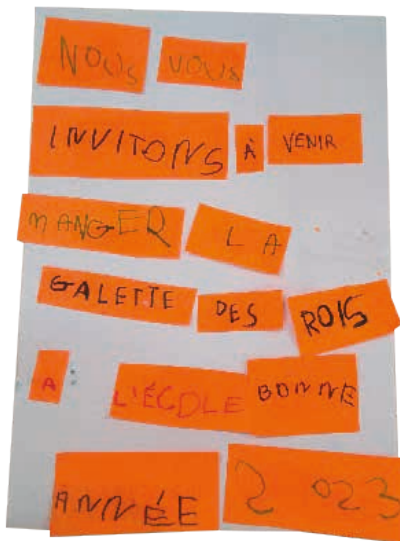 NOUS VOUS
INVITONS À VENIR
MANGER LA
GALETTE DES ROIS
A L'ÉCOLE BONNE
ANNÉE 2023